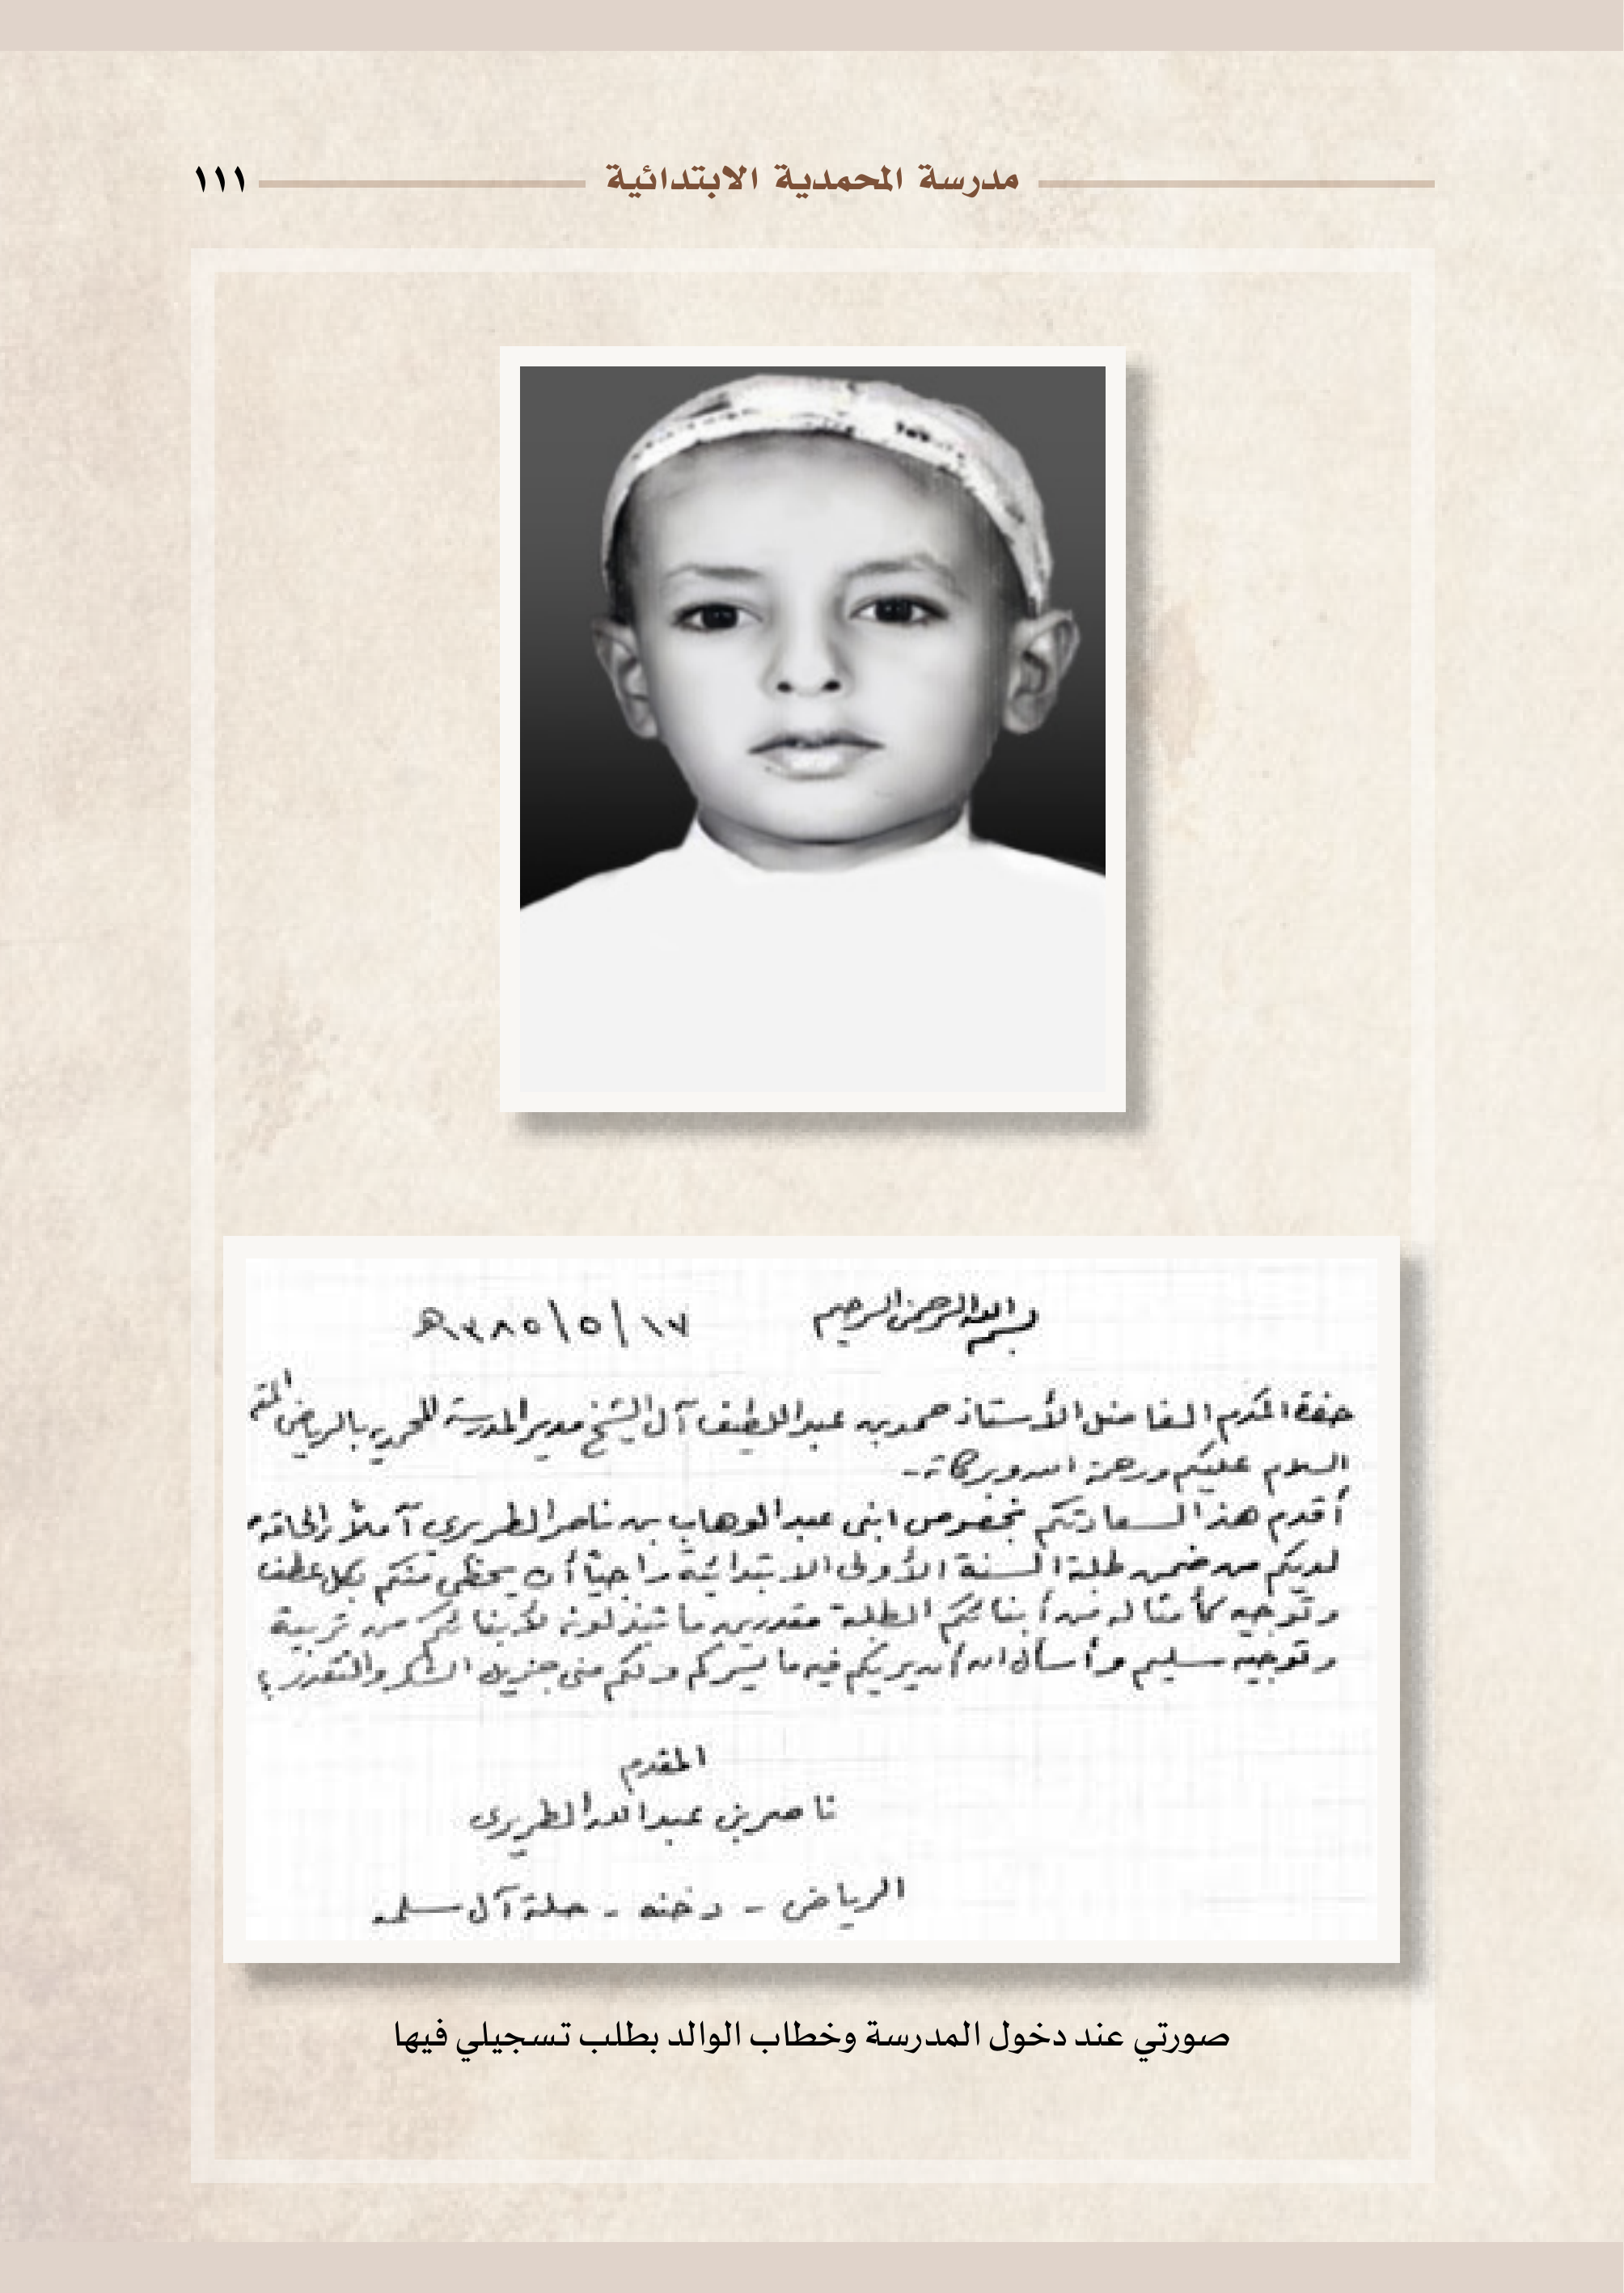 مدرسة المحمدية الابتدائية
١١١
بسم الله الرحمن الرحيم
١٧/٥/١٣٨٥هـ
حضرة المكرم الفاضل الأستاذ حمد بن عبداللطيف آل الشيخ مدير المدرسة المحمدية بالرياض
السلام عليكم ورحمة الله وبركاته -
أقدم هذا لسعادتكم بخصوص ابني عبدالوهاب بن ناصر الطريري آملاً إلحاقه
لديكم من ضمن طلبة السنة الأولى الابتدائية راجياً أن يحظى منكم بكل عطف
وتوجيه كأمثاله من أبنائكم الطلبة مقدرين ما تبذلونه لأبنائكم من تربية
وتوجيه سليم وأسأل الله أن يريكم فيه ما يسركم ولكم مني جزيل الشكر والتقدير ؛
المقدم
ناصر بن عبدالله الطريري
الرياض - دخنه - حلة آل
صورتي عند دخول المدرسة وخطاب الوالد بطلب تسجيلي فيها